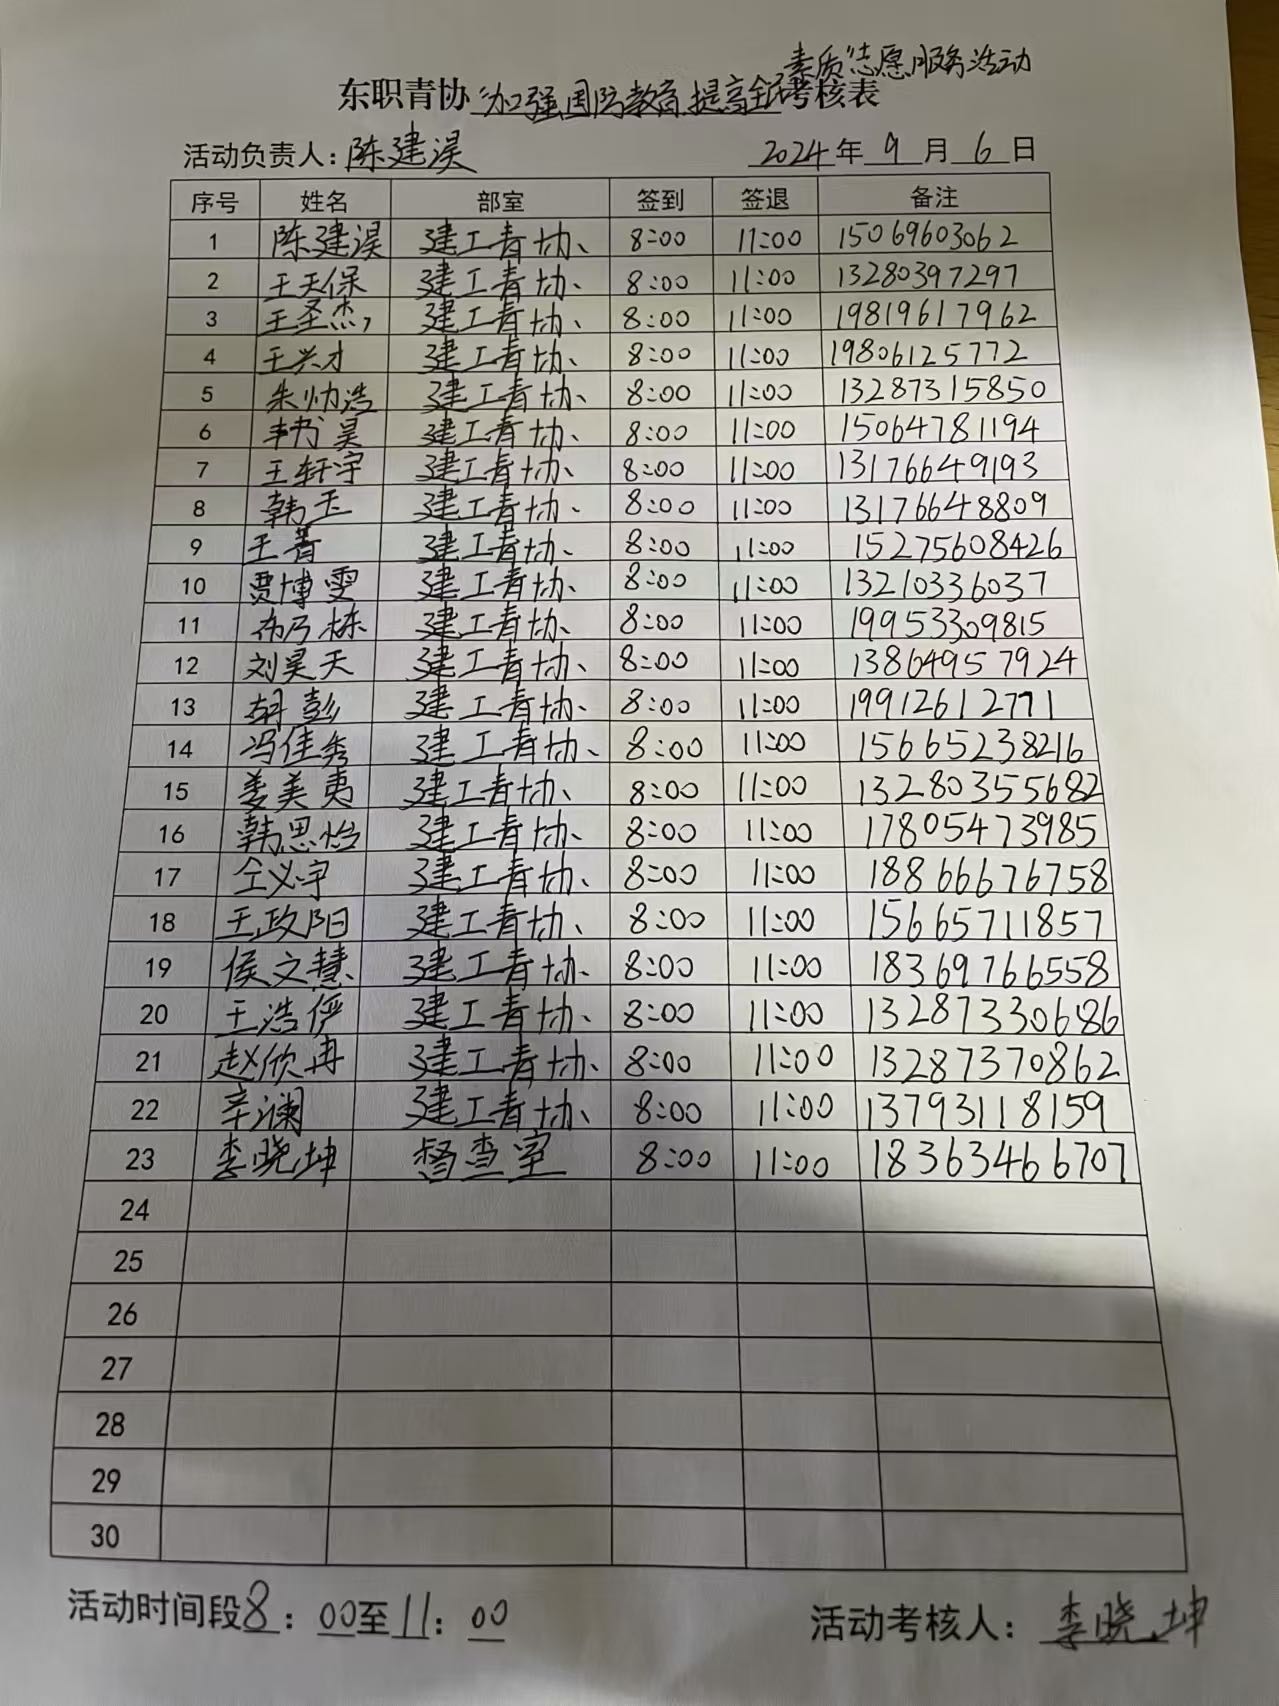 素质志愿服务活动
东职青协"加强国防教育,提高全民考核表
活动负责人:陈建淏 2024年9月6日
序号 姓名 部室 签到 签退 备注
1 陈建淏 建工青协、 8:00 11:00 15069603062
2 王天保 建工青协、 8:00 11:00 13280397297
3 王圣杰 建工青协、 8:00 11:00 19819617962
4 王兴才 建工青协、 8:00 11:00 19806125772
5 朱帅浩 建工青协、 8:00 11:00 13287315850
6 韦书昊 建工青协、 8:00 11:00 15064781194
7 王轩宇 建工青协、 8:00 11:00 13176649193
8 韩玉 建工青协、 8:00 11:00 13176648809
9 王菁 建工青协、 8:00 11:00 15275608426
10 贾博雯 建工青协、 8:00 11:00 13210336037
11 建工青协、 8:00 11:00 19953309815
12 刘昊天 建工青协、 8:00 11:00 13864957924
13 胡彭 建工青协、 8:00 11:00 19912612771
14 冯佳秀 建工青协、 8:00 11:00 15665238216
15 姜美夷 建工青协、 8:00 11:00 13280355682
16 韩思怡 建工青协、 8:00 11:00 17805473985
17 仝义宇 建工青协、 8:00 11:00 18866676758
18 王政阳 建工青协、 8:00 11:00 15665711857
19 侯文慧 建工青协、 8:00 11:00 18369766558
20 王浩俨 建工青协、 8:00 11:00 13287330686
21 赵欣冉 建工青协、 8:00 11:00 13287370862
22 辛澜 建工青协、 8:00 11:00 13793118159
23 李晓坤 督查室 8:00 11:00 18363466707
24
25
26
27
28
29
30
活动时间段8:00至11:00 活动考核人:李晓坤